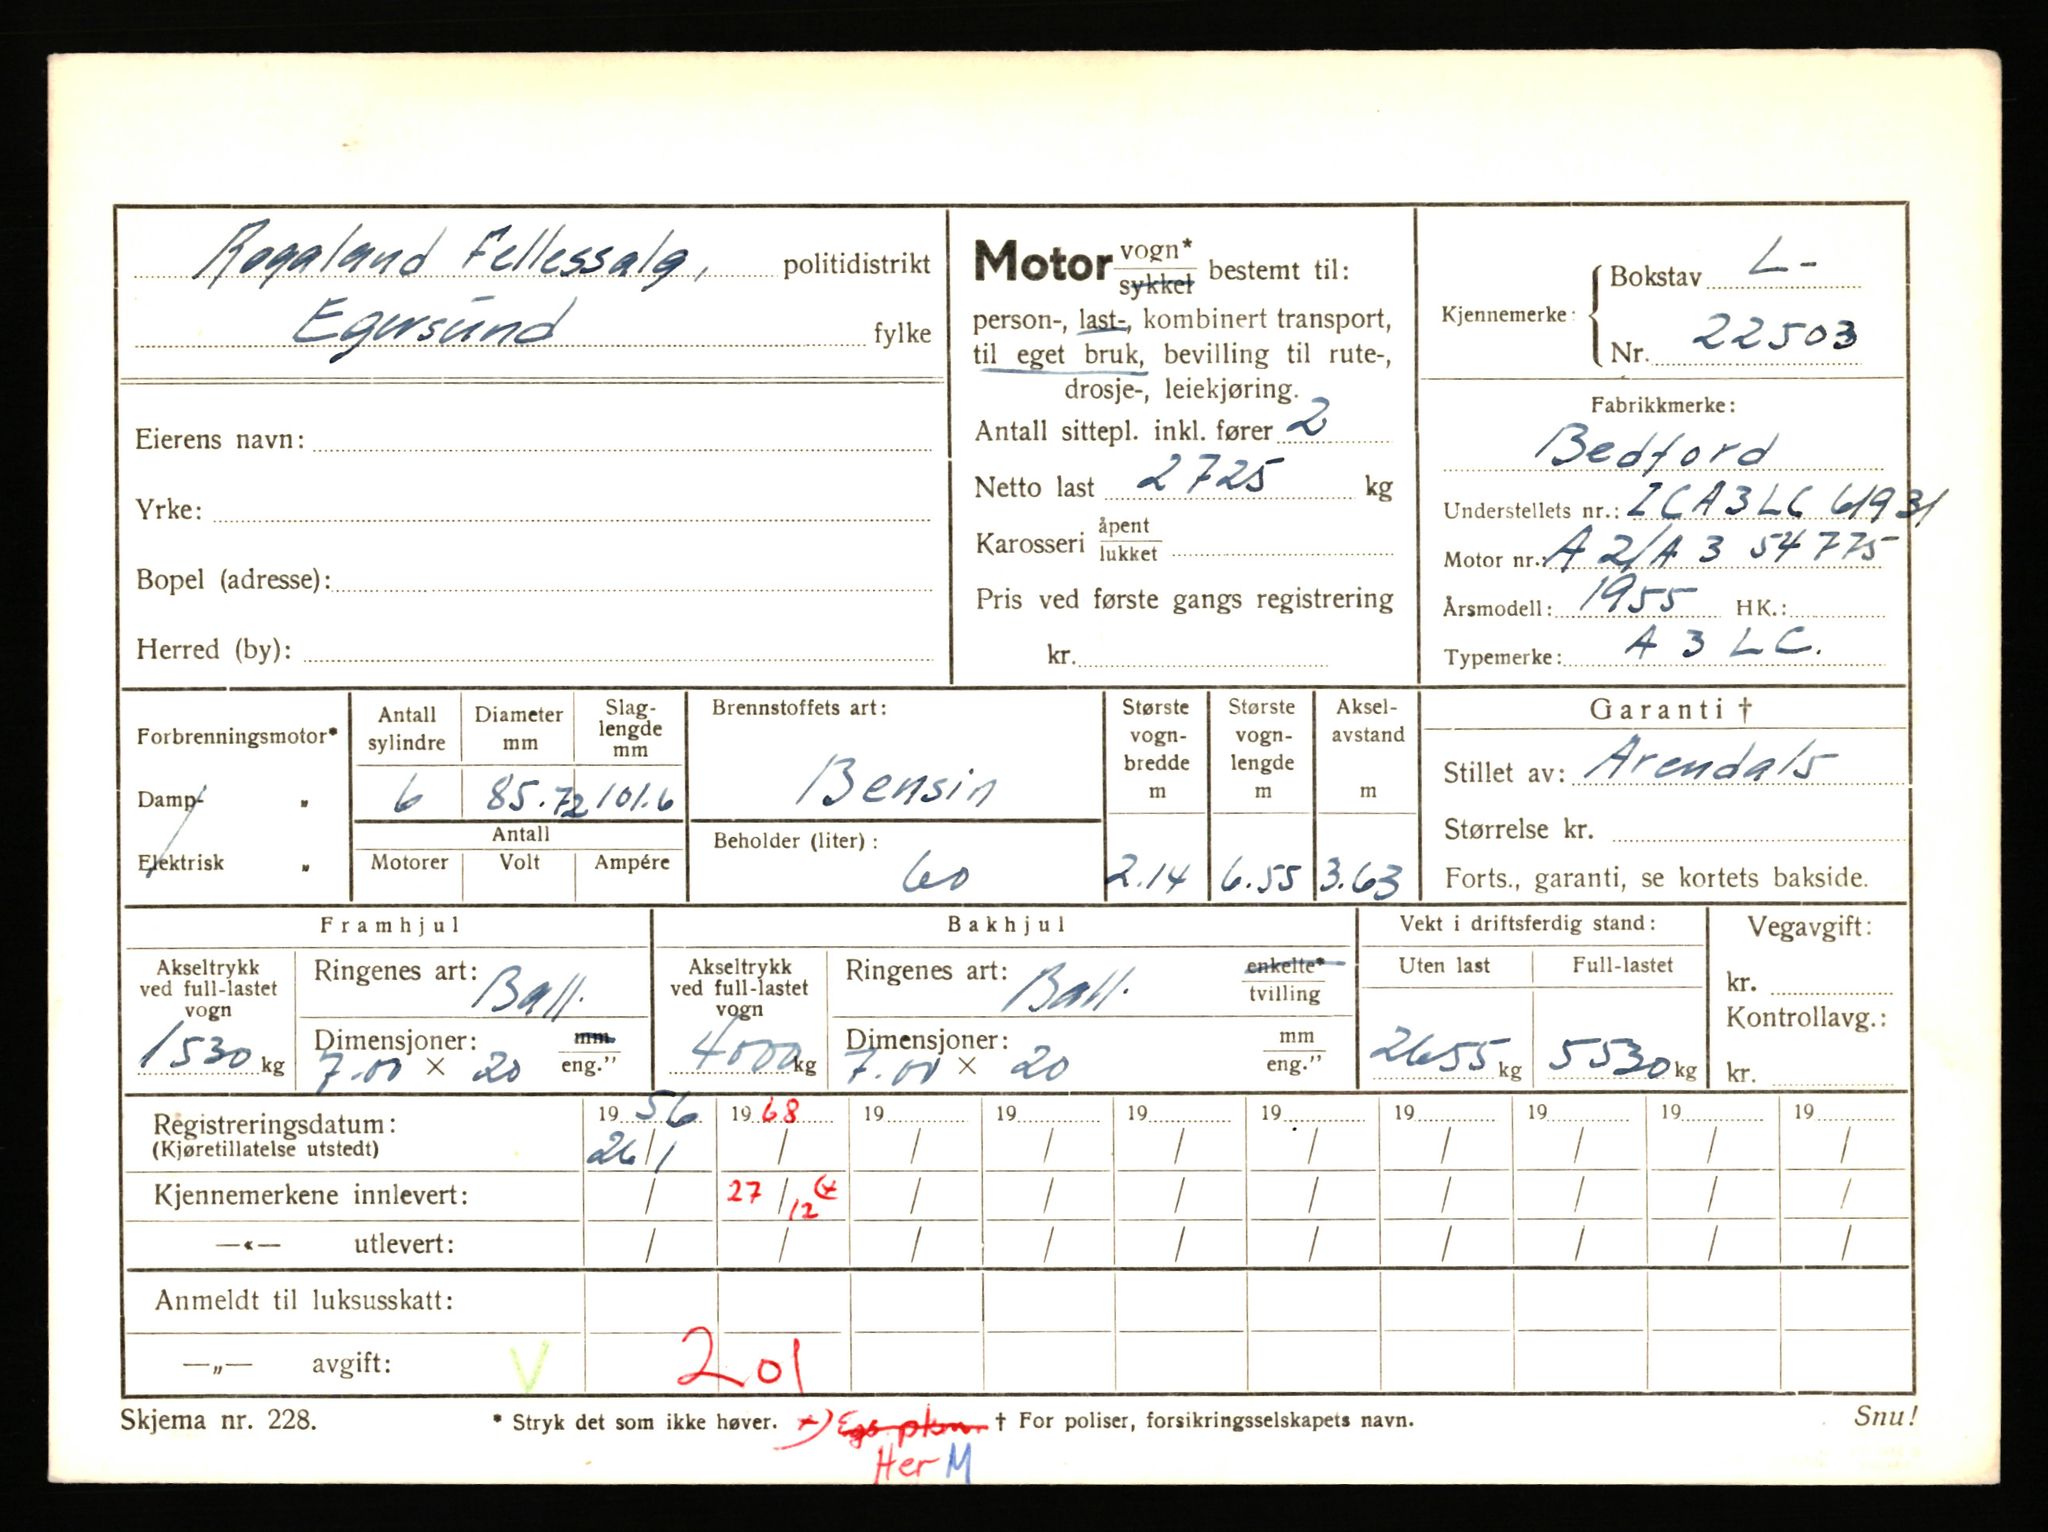 Rogaland Fellessalg, politidistrikt
Egersund fylke
Eierens navn:
Yrke:
Bopel (adresse):
Herred (by):
Motor vogn* / sykkel bestemt til:
person-, last-, kombinert transport,
til eget bruk, bevilling til rute-,
drosje-, leiekjøring.
Antall sittepl. inkl. fører 2
Netto last 2725 kg
Karosseri åpent / lukket
Pris ved første gangs registrering
kr.
Kjennemerke: Bokstav L-
Nr. 22503
Fabrikkmerke:
Bedford
Understellets nr.: ICA3LC 61931
Motor nr.: A2/A3 54775
Årsmodell: 1955 HK.:
Typemerke: A3LC.
Forbrenningsmotor*
Damp- „
Elektrisk „
Antall sylindre
Diameter mm
Slag-lengde mm
6 85.72 101.6
Antall
Motorer Volt Ampére
Brennstoffets art:
Bensin
Beholder (liter):
60
Største vogn-bredde m
2.14
Største vogn-lengde m
6.55
Aksel-avstand m
3.63
Garanti †
Stillet av: Arendals
Størrelse kr.
Forts., garanti, se kortets bakside.
Framhjul
Akseltrykk ved full-lastet vogn
1530 kg
Ringenes art: Ball.
Dimensjoner: mm / eng.”
7.00 × 20
Bakhjul
Akseltrykk ved full-lastet vogn
4000 kg
Ringenes art: Ball. enkelte* / tvilling
Dimensjoner: mm / eng.”
7.00 × 20
Vekt i driftsferdig stand:
Uten last Full-lastet
2655 kg 5530 kg
Vegavgift:
kr.
Kontrollavg.:
kr.
Registreringsdatum: 19 56 19 68 19 19 19 19 19 19 19 19
(Kjøretillatelse utstedt) 26/1 / / / / / / / / /
Kjennemerkene innlevert: / 27/12 / / / / / / / /
—«— utlevert: / / / / / / / / / /
Anmeldt til luksusskatt:
—„— avgift: V 201
Skjema nr. 228. * Stryk det som ikke høver. † For poliser, forsikringsselskapets navn. Snu!
Her M